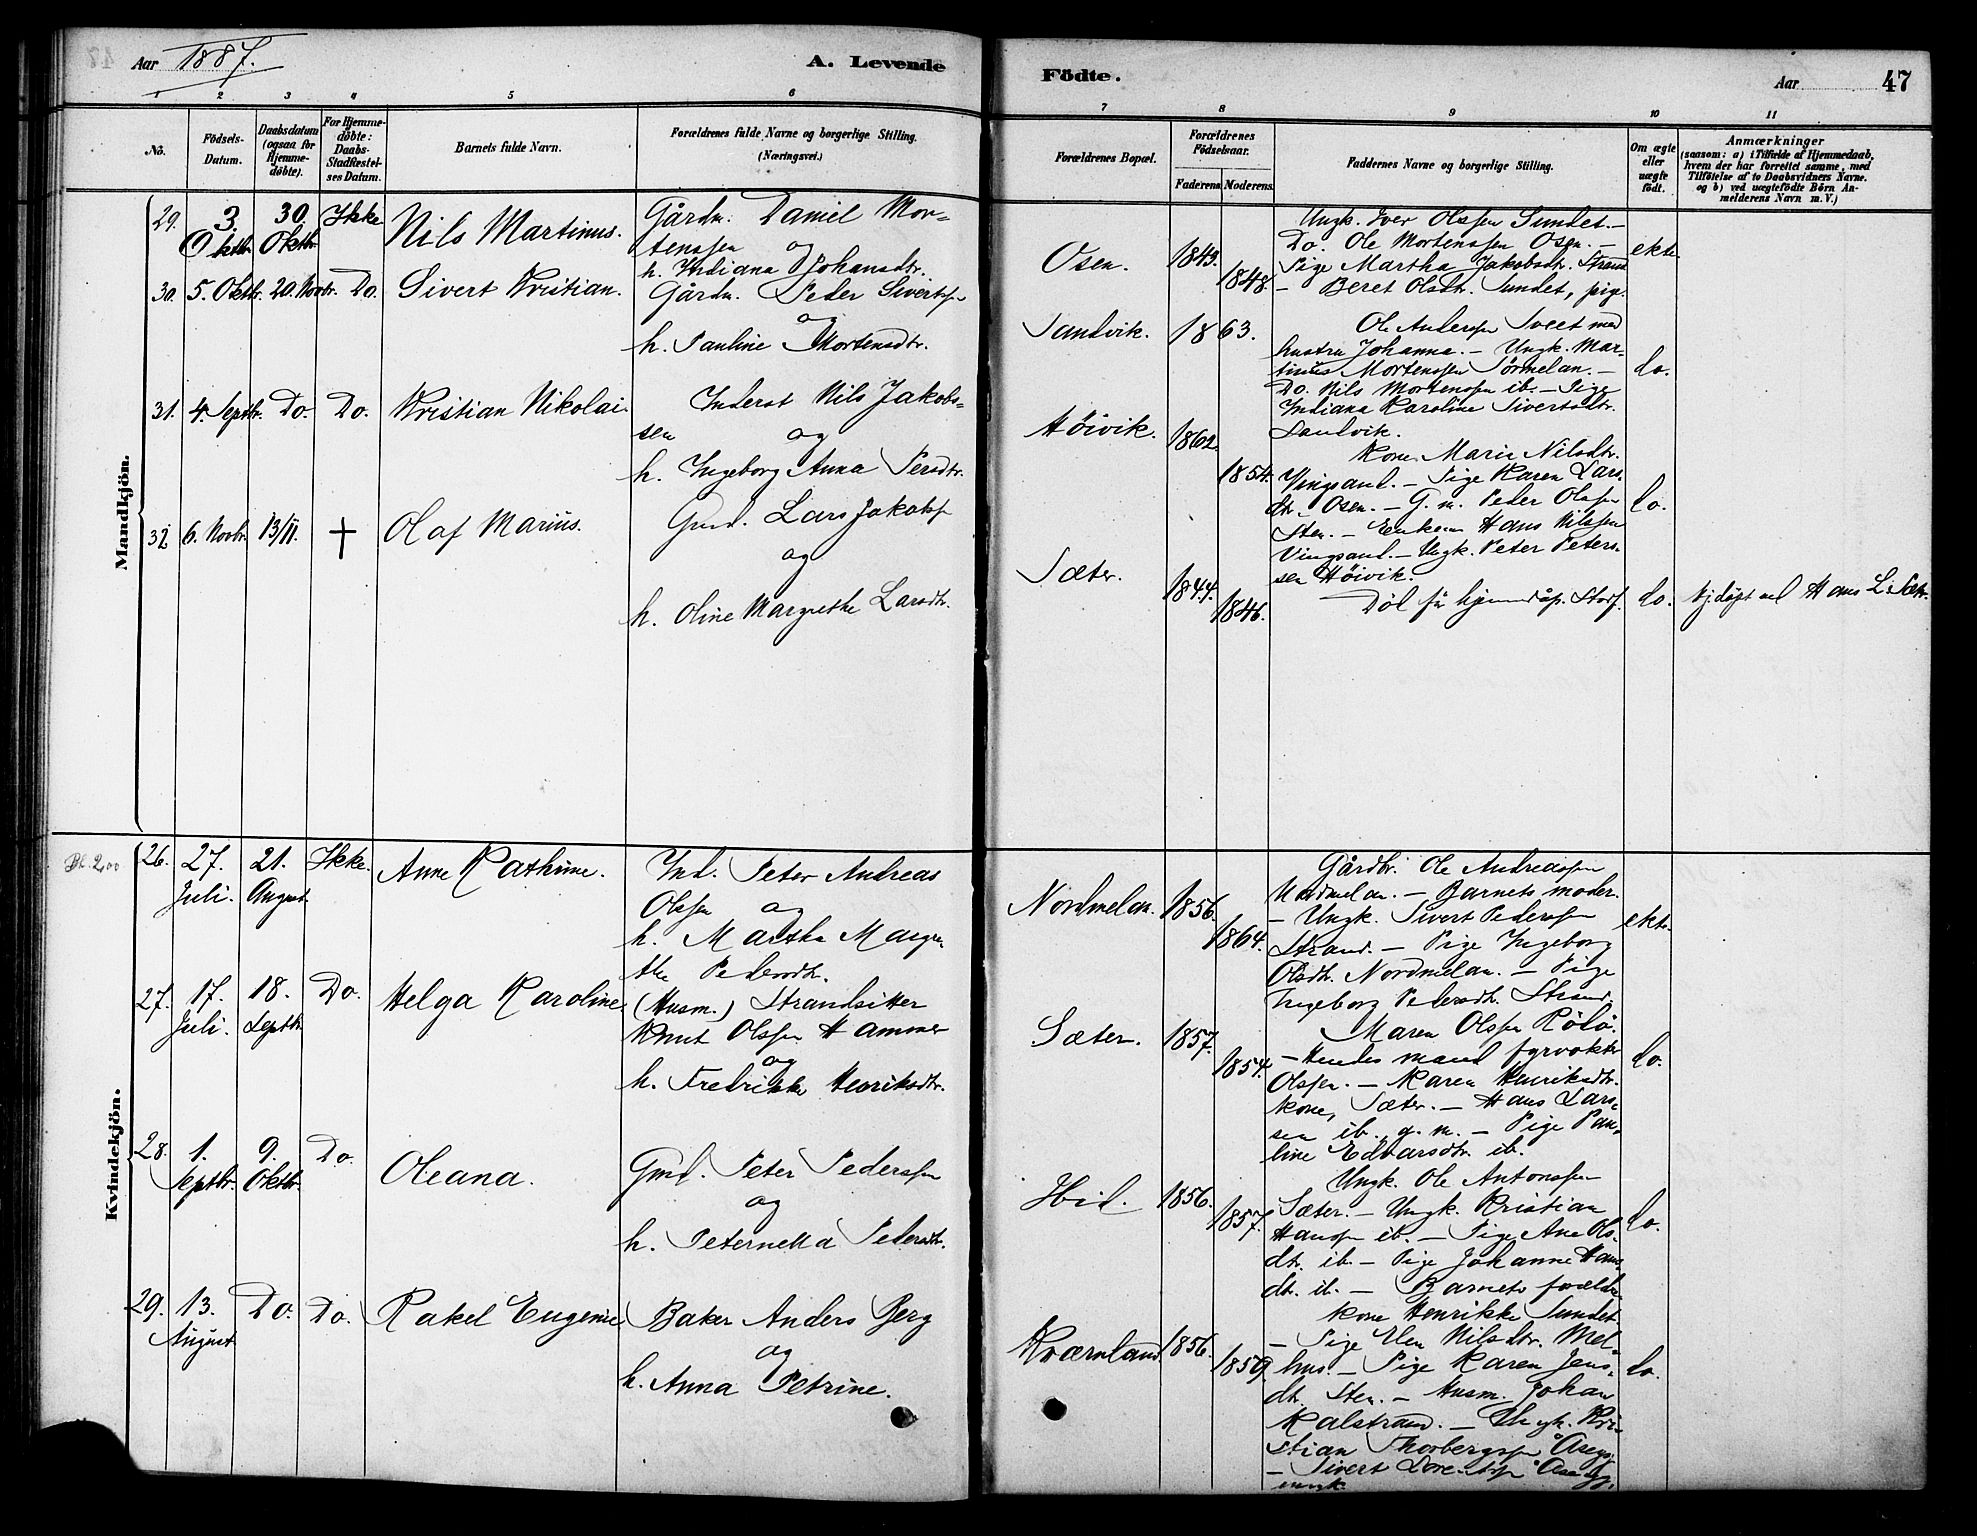 Aar 1887.
A. Levende
Födte.
Aar
47
1 2 3 4 5 6 7 8 9 10 11
No.
Födsels-Datum.
Daabsdatum (ogsaa for Hjemme-döbte).
For Hjemme-döbte: Daabs-Stadfæstel-ses Datum.
Barnets fulde Navn.
Forældrenes fulde Navne og borgerlige Stilling. (Næringsvei.)
Forældrenes Bopæl.
Forældrenes Födselsaar.
Faderens. Moderens.
Faddernes Navne og borgerlige Stilling.
Om ægte eller uægte födt.
Anmærkninger
(saasom: a) i Tilfælde af Hjemmedaab,
hvem der har forrettet samme, med
Tilföielse af to Daabsvidners Navne.
og b) ved uægtefödte Börn An-
melderens Navn m. V.)
Mandkjön.
29. 3. Oktbr. 30. Oktbr. Ikke Nils Martinus.
Gårdm. Daniel Mor-
tenssen og
h. Indiana Johansdtr.
Osen. 1843. 1848.
Ungk. Iver Olssen Sundet. -
Do. Ole Mortenssen Osen. -
Pige Martha Jakobsdtr. Strand
- Beret Olsdtr. Sundet, pige.
ekte
30. 5. Oktbr. 20. Novbr. Do. Sivert Kristian.
Gårdm. Peder Sivertss.
og
h. Pauline Mortensdtr.
Sandvik. 1863.
Ole Anderssen Sveet med
hustru Johanna. - Ungk. Mar-
tinus Mortenssen Sørmelan. -
Do. Nils Mortenssen ib. - Pige
Indiana Karoline Sivertsdtr.
Sandvik.
do.
31. 4. Septbr. Do. Do. Kristian Nikolai
Inderst Nils Jakobs-
sen og
h. Ingeborg Anna Persdtr.
Høivik. 1862. 1854.
Kone Marie Nilsdtr.
Vingsand. - Pige Karen Lars-
dtr. Osen. - G. m. Peder Olssen
Sten. - Enkem. Hans Nilssen
Vingsand. - Ungk. Peter Peters-
sen Høivik.
do.
32 6. Novbr. 13/11. † Olaf Marius.
Gmd. Lars Jakobss
og
h. Oline Margrethe Larsdtr.
Sæter. 1844. 1846.
Død før hjemmedåp. Stadf.
do.
hjdøpt ved Hans L. Sæter.
Kvindekjön.
Bl. 2,00
26. 27. Juli. 21. August. Ikke. Anne Kathrine.
Ind. Peter Andreas
Olssen og
h. Martha Margre-
the Pedersdtr.
Nordmelan. 1856. 1864.
Gårdbr. Ole Andreassen
Nordmelan. - Barnets moder.
- Ungk. Sivert Pederssen
Strand. - Pige Ingeborg
Olsdtr. Nordmelan. - Pige
Ingeborg Pedersdtr. Strand.
ekte.
27. 17. Juli. 18. Septbr. Do. Helga Karoline
(Husm.) Strandsitter
Knut Olssen Hammer
og
h. Fredrikke Henriksdtr.
Sæter. 1857. 1854.
Maren Olssen Rølø.
- Hendes mand fyrvokter
Olssen. - Karen Henriksdtr.
kone, Sæter. - Hans Lars-
sen ib. g. m. - Pige Pau-
line Edvarsdtr. ib.
do.
28. 1. Septbr. 9. Oktbr. Do. Oleana.
Gmd. Peter Pederssen
og
h. Peternella Pedersdtr.
Hvid. 1856. 1857.
Ungk. Ole Antonssen
Sæter. - Ungk. Kristian
Hanssen ib. - Pige Ane Ols-
dtr. ib. - Pige Johanne Hans-
dtr. ib. - Barnets forældre
do.
29. 13. August Do. Do. Rakel Eugenie
Baker Anders Berg
og
h. Anna Petrine.
Kværnland. 1856. 1859.
Kone Henrikke Sundet
- Pige Elen Nilsdtr. Mel-
hus. - Pige Karen Jens-
dtr. Sten. - Husm. Johan
Kalstrand. - Ungk. Kri-
stian Thorbergssen Åsegg
- Sivert Åsegg,
ungk.
do.